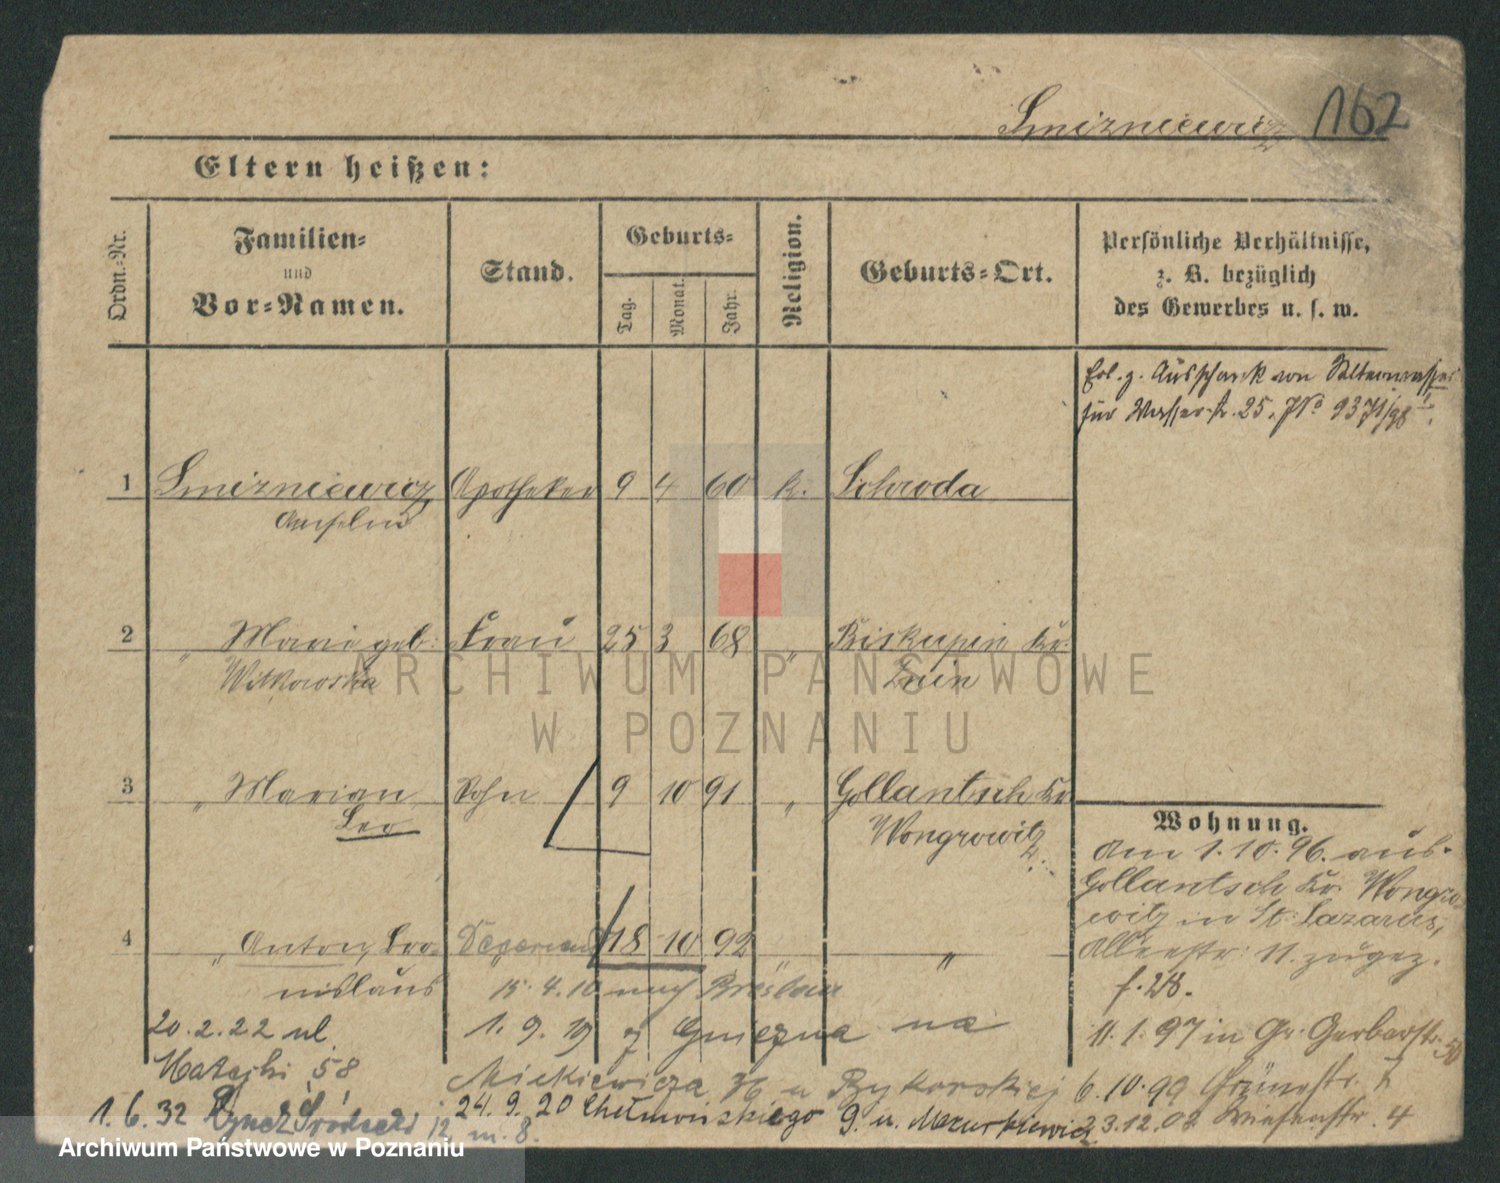 Smizniewicz 162
Eltern heißen:
Ordn.-Nr.
Familien-
und
Vor-Namen.
Stand.
Geburts-
Tag.
Monat.
Jahr.
Religion.
Geburts-Ort.
Persönliche Verhältnisse,
z. B. bezüglich
des Gewerbes u. s. w.
Erl. z. Ausschank von Selterwasser
für Wasserstr. 25. 9371/98
1 Smizniewicz Apotheker 9 4 60 k. Schroda
Anselm
2 " Marie geb. Frau 25 3 68 " Biskupin Kr.
Witkowska Znin
3 " Marian Sohn 9 10 91 " Gollantsch Kr.
Leo Wongrowitz
Wohnung.
Am 1.10.96. aus
Gollantsch Kr. Wongro
witz in St. Lazarus,
Alleestr. 11. zugez.
4 " Anton, Bro- 18 10 92 " "
nislaus 15.4.10 nach Breslau
f. 28.
20.2.22 ul. 1.9.19 z Gniezna na 11.1.97 in Gr. Gerberstr. 50
Matejki 58 Mickiewicza 36 u Bykowskiej 6.10.99 Grünestr.
1.6.32 Rynek Śródecki 12 m. 8. 24.9.20 Chełmońskiego 9. u. Mazurkiewicz 23.12.08. Wiesenstr. 4
ARCHIWUM PAŃSTWOWE
W POZNANIU
Archiwum Państwowe w Poznaniu